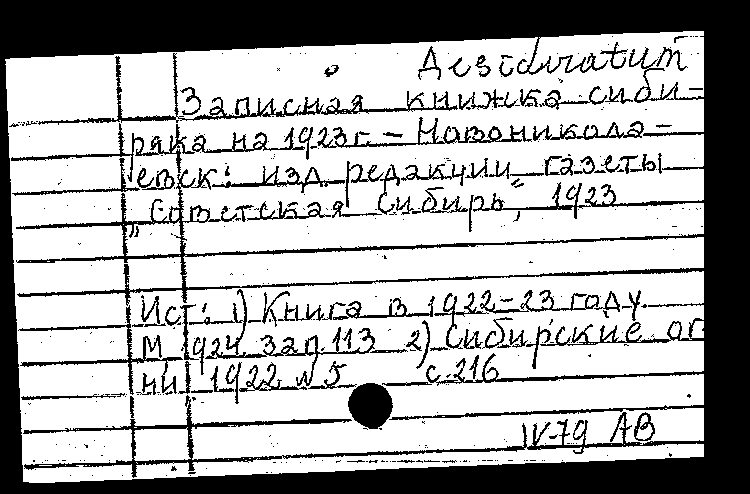 Desideratum
Записная книжка сиби-
ряка на 1923г. - Новоникола-
евск: изд. редакции газеты
„Советская Сибирь", 1923
Ист.: 1) Книга в 1922-23 году.
М, 1924. зап. 113 2) Сибирские ог
ни 1922 № 5 с. 216
IV-79 АВ